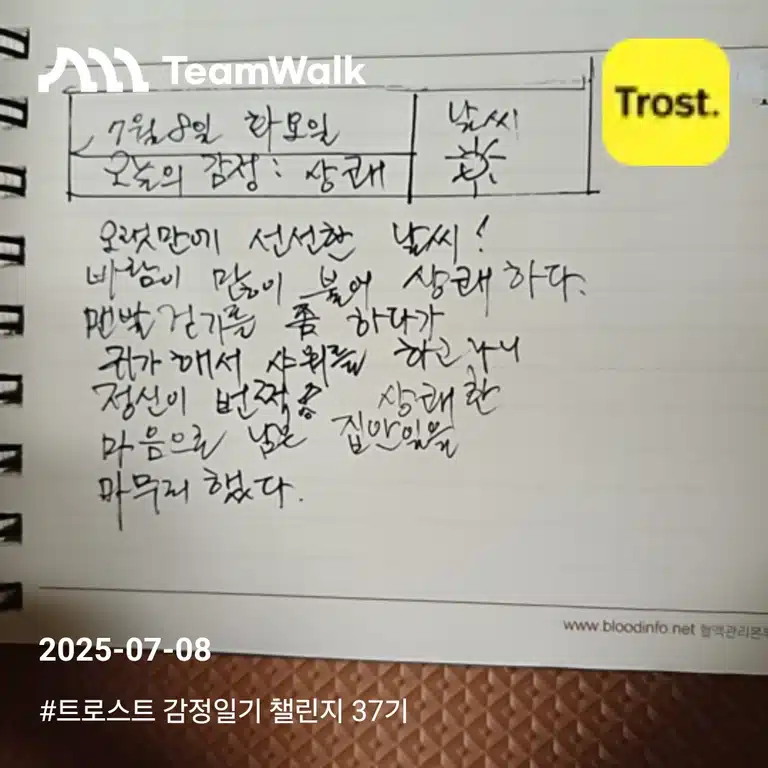 TeamWalk
Trost.
7월 8일 화요일
날씨
오늘의 감정 : 상쾌
오랫만에 선선한 날씨!
바람이 많이 불어 상쾌하다.
맨발 걷기를 쫌 하다가
귀가해서 샤워를 하고나니
정신이 번쩍! 상쾌한
마음으로 남은 집안일을
마무리 했다.
www.bloodinfo.net 혈액관리본부
2025-07-08
#트로스트 감정일기 챌린지 37기